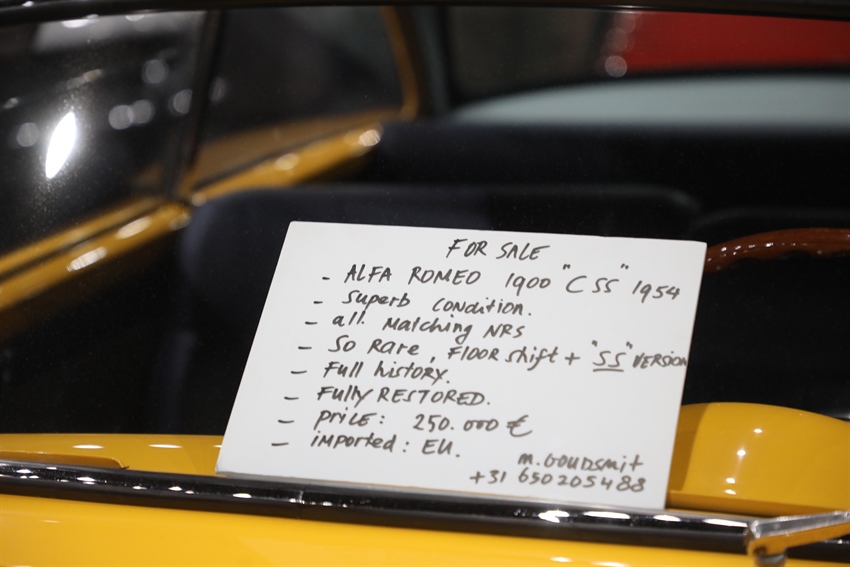 FOR SALE
- ALFA ROMEO 1900 "CSS" 1954
- Superb condition.
- all Matching NRS
- So Rare, FLOOR shift + "SS" VERSION
- Full history.
- Fully RESTORED.
- PRICE: 250.000 €
- imported: EU.
M. GOUDSMIT
+31 650205488